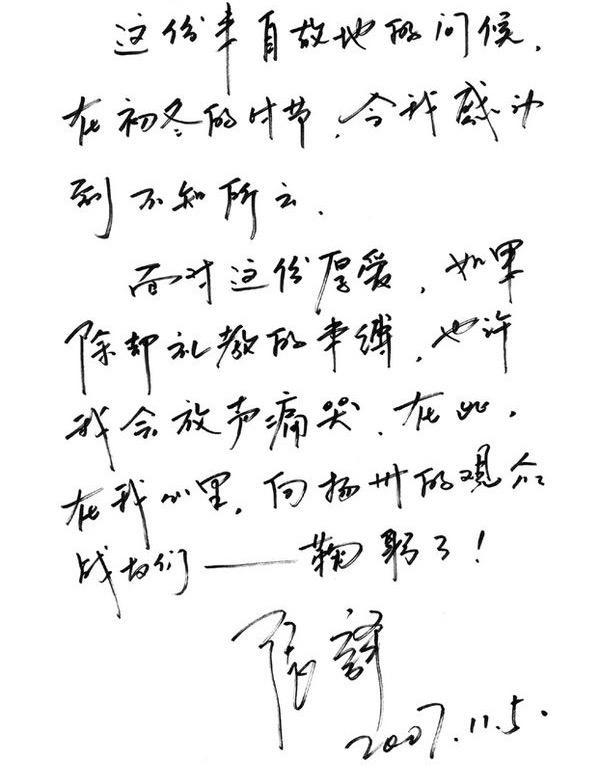 这份来自故地的问候，
在初冬的时节，令我感动
到不知所云.
面对这份厚爱，如果
除却礼教的束缚，也许
我会放声痛哭.在此，
在我心里，向扬州的观众
战友们——鞠躬了！
张譯
2007.11.5.